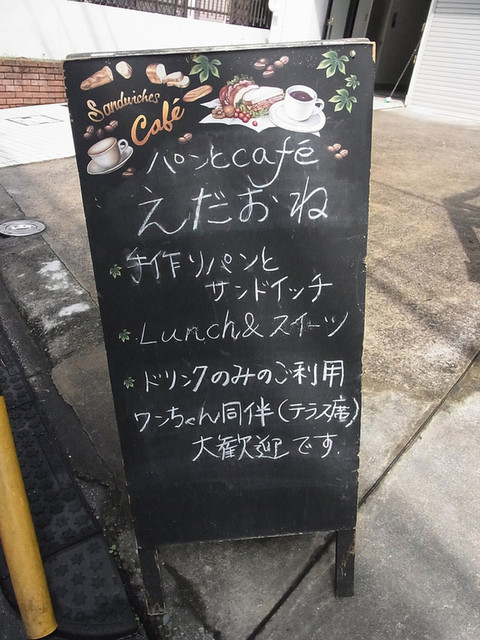 Sandwiches
Café
パンとcafé
えだおね
手作りパンと
サンドイッチ
Lunch&スイーツ
ドリンクのみのご利用
ワンちゃん同伴(テラス庵)
大歓迎です.